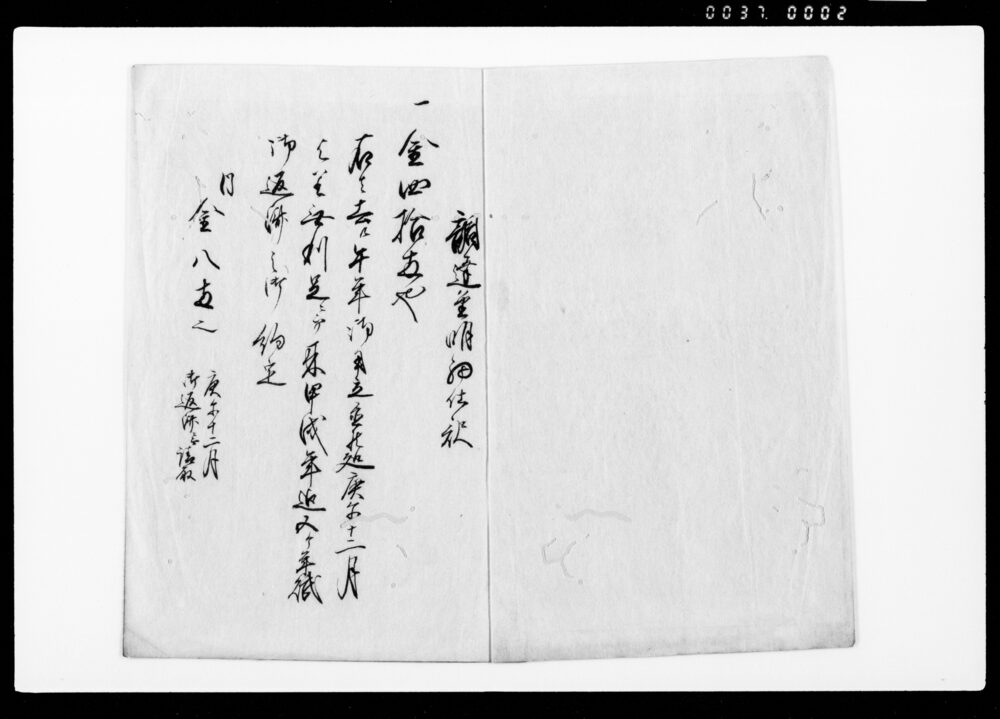 0037. 0002
調達金明細仕訳
一
金四拾両也
右者去ル午年御用立金此起庚午十二月
無利足ニ而来甲戌年迄五ヶ年賦
御返済之御約定
内
金八両也
庚午十二月
御返済ニ請取